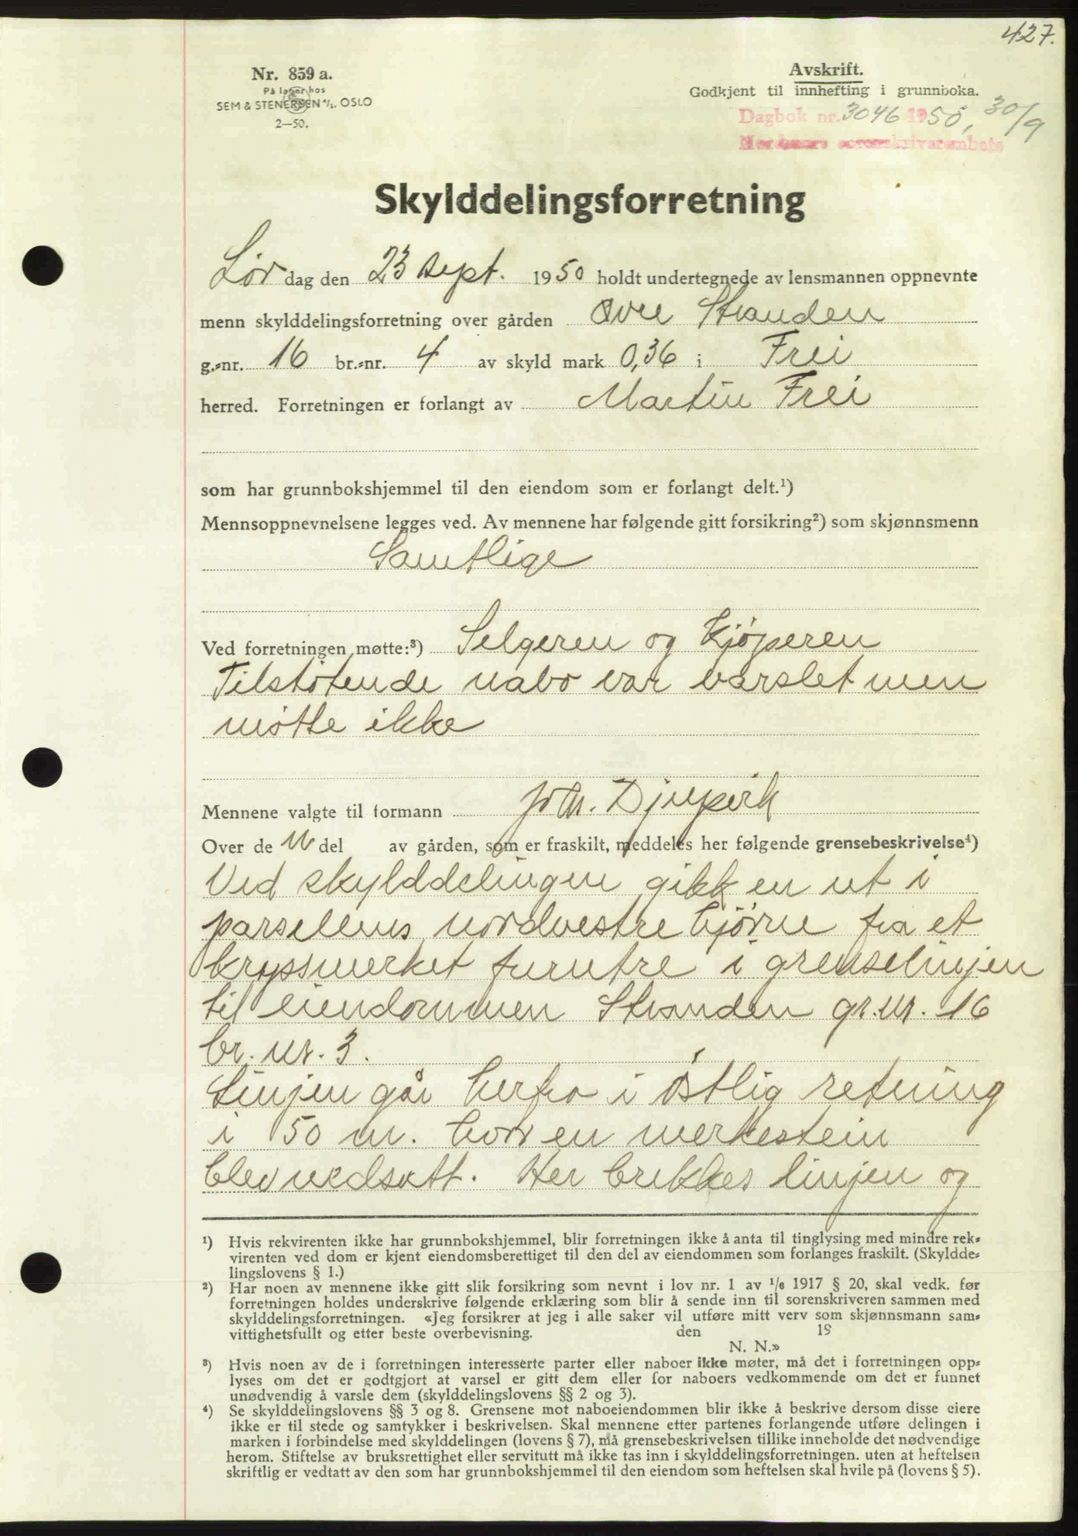 427.
Nr. 859 a.
På lager hos
SEM & STENERSEN A/S, OSLO
2—50.
Avskrift.
Godkjent til innhefting i grunnboka.
Dagbok nr. 3046 1950, 30/9
Nordmøre sorenskrivarembete
Skylddelingsforretning
Lørdag den 23 sept. 1950 holdt undertegnede av lensmannen oppnevnte
menn skylddelingsforretning over gården Øvre Stranden
g.-nr. 16 br.-nr. 4 av skyld mark 0,36 i Frei
herred. Forretningen er forlangt av Martin Frei
som har grunnbokshjemmel til den eiendom som er forlangt delt.¹)
Mennsoppnevnelsene legges ved. Av mennene har følgende gitt forsikring²) som skjønnsmenn
Samtlige
Ved forretningen møtte:³) Selgeren og kjøperen
Tilstøtende nabo var varslet men
møtte ikke
Mennene valgte til formann Joh. Djupvik
Over de n del av gården, som er fraskilt, meddeles her følgende grensebeskrivelse⁴)
Ved skylddelingen gikk en ut i
parsellens nordvestre hjørne fra et
kryssmerket furutre i grenselinjen
til eiendommen Stranden gr.nr. 16
br. nr. 3.
Linjen går herfra i østlig retning
i 50 m. hvor en merkestein
blev nedsatt. Her brekkes linjen og
¹) Hvis rekvirenten ikke har grunnbokshjemmel, blir forretningen ikke å anta til tinglysing med mindre rek-
virenten ved dom er kjent eiendomsberettiget til den del av eiendommen som forlanges fraskilt. (Skyldde-
lingslovens § 1.)
²) Har noen av mennene ikke gitt slik forsikring som nevnt i lov nr. 1 av ¹/₆ 1917 § 20, skal vedk. før
forretningen holdes underskrive følgende erklæring som blir å sende inn til sorenskriveren sammen med
skylddelingsforretningen. «Jeg forsikrer at jeg i alle saker vil utføre mitt verv som skjønnsmann sam-
vittighetsfullt og etter beste overbevisning. den 19
N. N.»
³) Hvis noen av de i forretningen interesserte parter eller naboer ikke møter, må det i forretningen opp-
lyses om det er godtgjort at varsel er gitt dem eller for naboers vedkommende om det er funnet
unødvendig å varsle dem (skylddelingslovens §§ 2 og 3).
⁴) Se skylddelingslovens §§ 3 og 8. Grensene mot naboeiendommen blir ikke å beskrive dersom disse eiere
ikke er til stede og samtykker i beskrivelsen. Skal mennene etter partenes forlangende utføre delingen i
marken i forbindelse med skylddelingen (lovens § 7), må grensebeskrivelsen tillike inneholde det nødvendige
herom. Stiftelse av bruksrettighet eller servitutt må ikke tas inn i skylddelingsforretningen. uten at heftelsen
skriftlig er vedtatt av den som har grunnbokshjemmel til den eiendom som heftelsen skal hvile på (lovens § 5).